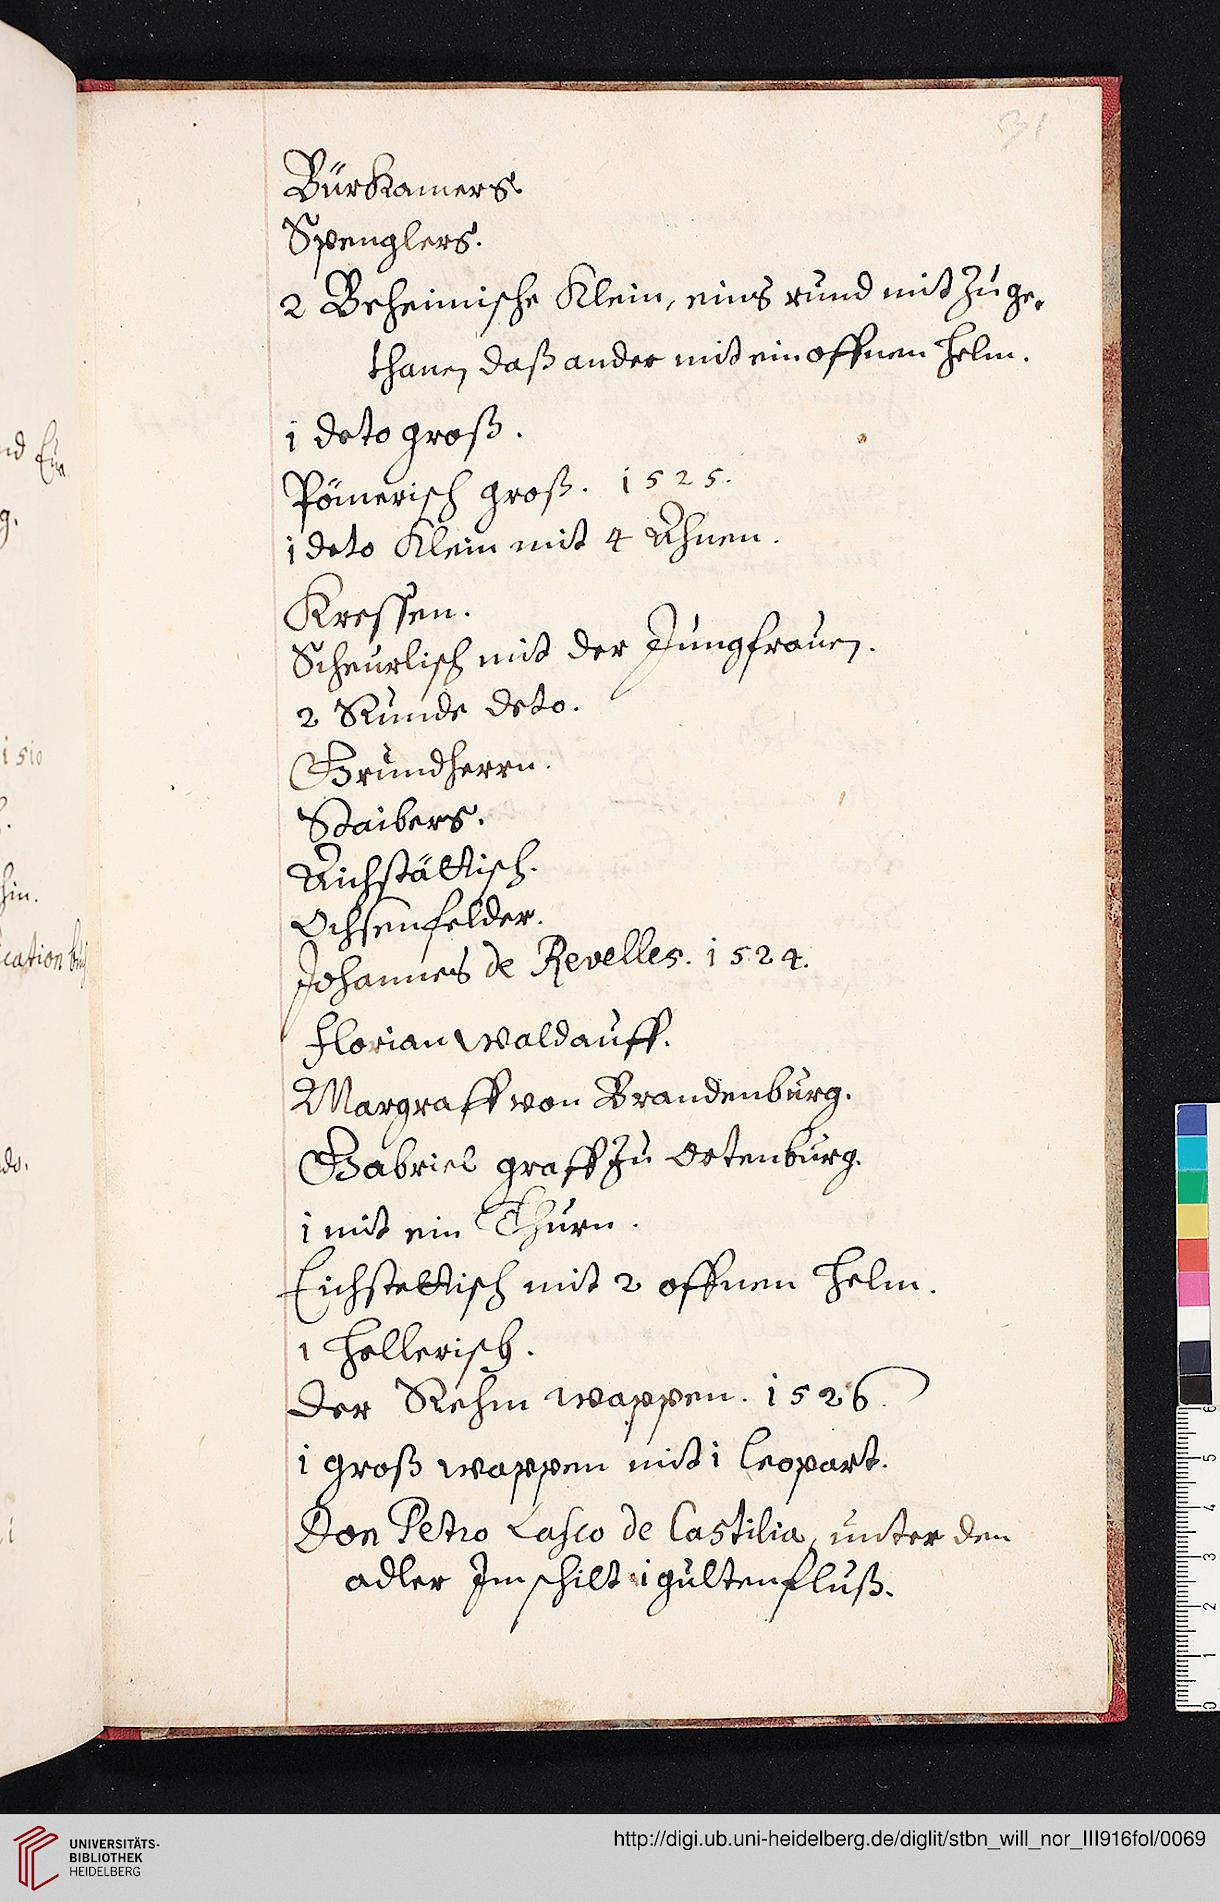 31
Bürkamers.
Spenglers.
2 Beheimische Klein, eins rund mit Zu ge„
thanen, daß ander mit ein offnen helm.
1 deto groß.
Pömerisch groß. 1525.
1 deto Klein mit 4 Ahnen.
Kressen.
Scheurlisch mit der Jungfrauen.
2 Runde deto.
Grundherrn.
Staibers.
Aichstättisch.
Ochsenfelder.
Johannes de Revelles. 1524.
Florian Waldauff.
Margraff von Brandenburg.
Gabriel graff Zu Ortenburg.
1 mit ein Thurn.
Eichstettisch mit 2 offnen helm.
1 hallerisch.
Der Rehm wappen. 1526.
1 groß wappen mit 1 leopart.
Don Petro Lasco de Castilia, unter den
adler Im schilt 1 gulten fluß.
UNIVERSITÄTS-
BIBLIOTHEK
HEIDELBERG
http://digi.ub.uni-heidelberg.de/diglit/stbn_will_nor_III916fol/0069